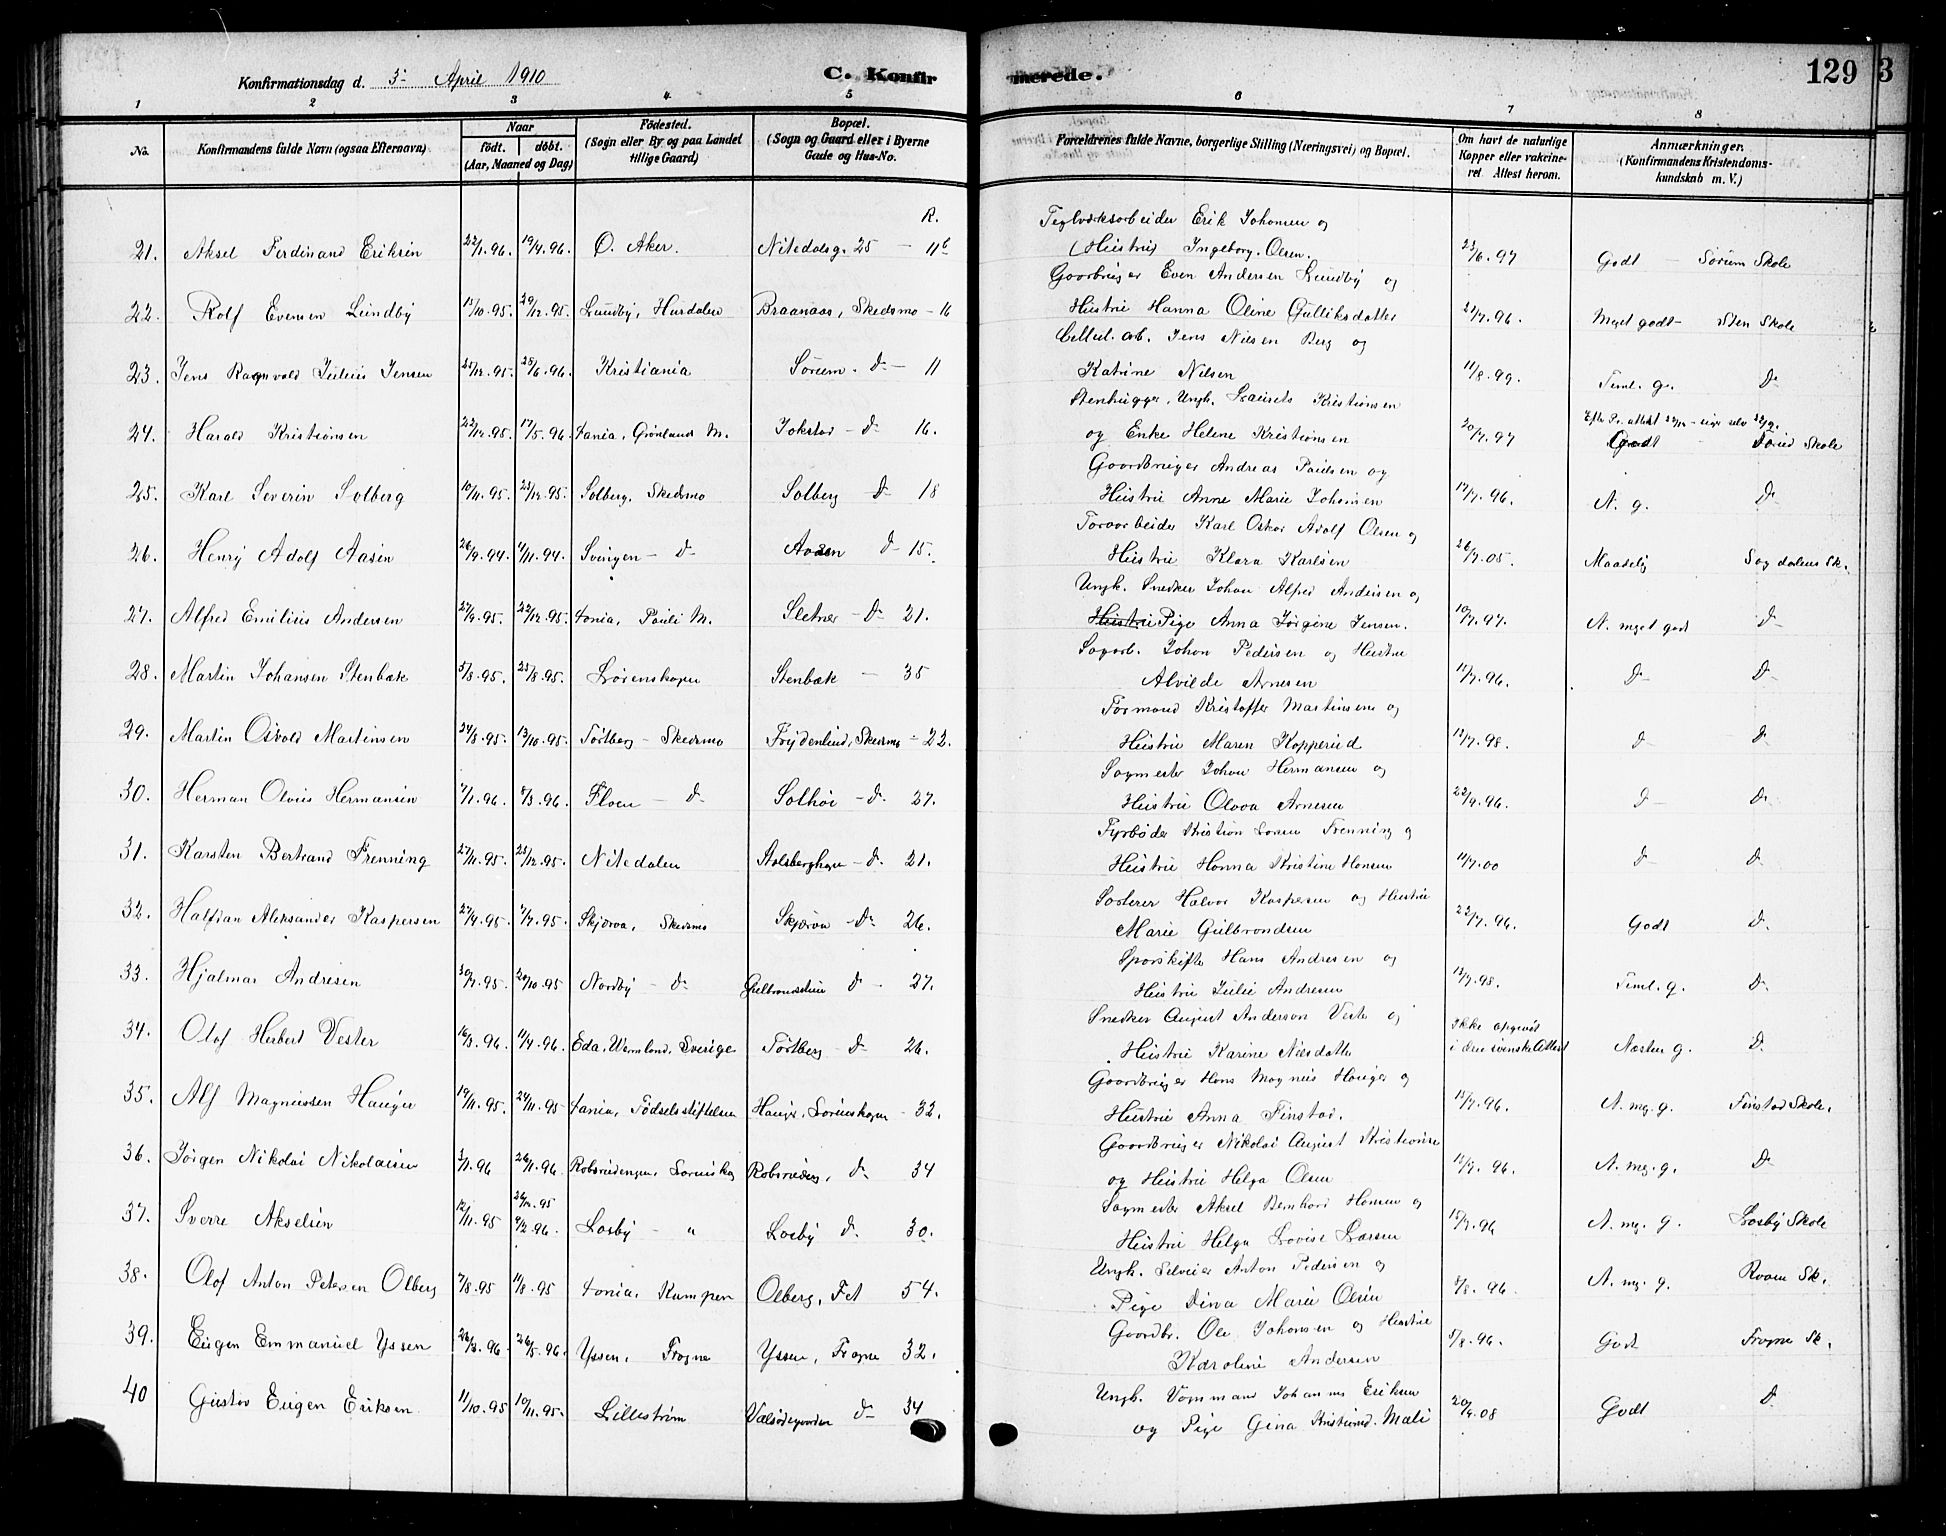 Konfirmationsdag d. 3. April 1910
C. Konfirmerede.
129
3
1 2 3 4 5 6 7 8
No. Konfirmandens fulde Navn (ogsaa Efternavn)
Naar født. døbt. (Aar, Maaned og Dag)
Fødested. (Sogn eller By og paa Landet tillige Gaard)
Bopæl. (Sogn og Gaard eller i Byerne Gade og Hus-No.
Forældrenes fulde Navne, borgerlige Stilling (Næringsvei) og Bopæl.
Om havt de naturlige Kopper eller vakcineret. Attest herom.
Anmærkninger. (Konfirmandens Kristendomskundskab m. V.)
R.
Teglverksarbeider Erik Johansen og
21. Aksel Ferdinand Eriksen 22/1.96. 19/4.96. Ø. Aker. Nitedalsg. 25 – 11 b Hustru Ingeborg Olsen. 23/6.97 Godt – Sørum Skole
Gaardbruger Even Andersen Lundby og
22. Rolf Evensen Lundby 15/10.95. 29/12.95. Lundby, Hurdalen Braanaas, Skedsmo – 16 Hustru Hanna Oline Gulliksdatter 21/7.96. Meget godt – Sten Skole
Cellul. arb. Jens Nilsen Berg og
23. Jens Ragnvald Julius Jensen 25/12.95. 28/6.96. Kristiania Sørum – D – 11 Katrine Nilsen 11/8.99. Teml. g. D
Stenhugger, Ungk. Laurits Kristiansen
24. Harald Kristiansen 22/12.95. 17/5.96. Xania, Grønland M. Jokstad – D – 16. og Enke Helene Kristiansen 20/7.97 Godt Skole
Gaardbruger Andreas Paulsen og
25. Karl Severin Solberg 10/11.95. 23/12.95. Solberg, Skedsmo Solberg – D – 18 Hustru Anne Marie Johansen 17/7.96. N. g. D
Karl Oskar Adolf Olsen og
26. Henry Adolf Aasen 26/9.94. 4/11.94. Svingen – D Aasen D – 15. Hustru Klara Karlsen 26/7.05. Maadelig Sagdalens Sk.
Ungk. Snedker Johan Alfred Andersen og
27. Alfred Emilius Andersen 27/9.95. 22/12.95. Xania, Pauli M. Sletner – D 21. Hustru Pige Anna Jørgine Jensen. 10/7.97. N. meget godt D
Sagarb. Johan Pedersen og Hustru
28. Martin Johansen Stenbæk 5/8.95. 25/8.95. Lørenskogen Stenbæk – 35 Alvilde Arnesen 11/7.96. D D
Formand Kristoffer Martinsen og
29. Martin Osvald Martinsen 24/8.95. 13/10.95. Tortberg – Skedsmo Frydenlund, Skedsmo – 22. Hustru Maren Kopperud 12/7.98. D D
Sagmester Johan Hermansen og
30. Herman Olvius Hermansen 7/1.96. 8/3.96. Floen – D Solhøi – D. 27. Hustru Olava Arnesen 22/9.96. D D
Fyrbøder Kristian Frenning og
31. Karsten Bertrand Frenning 27/11.95. 25/12.95. Nitedalen Stalsberghagen – D. 21. Hustru Hanna Kristine Hansen 11/7.00 D D
Sorterer Halvor Kaspersen og Hustru
32. Halfdan Aleksander Kaspersen 27/4.95. 7/7.95. Skjærva, Skedsmo Skjærva – D 26. Marie Gulbrandsen 22/7.96. Godt D
Sporskifter Hans Andresen og
33. Hjalmar Andresen 30/7.95. 20/10.95 Nordby – D Gulbrandstuen D – 27. Hustru Julie Andresen 13/7.98. Teml. g. D
Snedker August Anderson Vester og
34. Olof Herbert Vester 16/3.96. 11/4.96. Eda, Wermland, Sverige Tortberg – D 26. Hustru Karine Nilsdatter Ikke opgivet i den svenske Attest Næsten g. D
Gaardbruger Hans Magnus Hauger og
35. Alf Magnussen Hauger 19/11.95. 24/11.95. Xania, Fødselsstiftelsen Hauger, Lørenskogen – 32. Hustru Anna Finstad. 15/7.96. N. mg. g. Finstad Skole.
Gaardbruger Nikolai August Kristiansen
36. Jørgen Nikolai Nikolaisen 3/1.96 26/1.96. Robsrudengen, Lørenskog Robsruden, D 34 og Hustru Helga Olsen 15/7.96. N. mg. g. D
Sagmester Aksel Bernhard Hansen og
37. Sverre Akselsen 12/11.95 26/12.95 9/2.96. Losby – " Losby D 30. Hustru Helga Lovise Larsen 15/7.96 N. mg. g. Losby Skole
Ungk. Anton Pedersen og
38. Olof Anton Petersen Olberg 7/8.95 11/8.95 Xania, Kampen Olberg, Fet 54. Pige Dina Marie Olsen 8/8.96. N. mg. g. Roven Sk.
Gaardbr. Ole Johansen og Hustru
39. Eugen Emmanuel Yssen 26/3.96. 26/5.96. Yssen, Frogne Yssen, Frogne 32. Karoline Andersen 5/8.96. Godt Frogne Sk.
Ungk. Johannes Eriksen
40 Gustav Eugen Eriksen 11/10.95 10/11.95. Lillestrøm Valsødegaarden D – 34 og Pige Gina Kristiansd. Mæli 20/4.08 Godt D